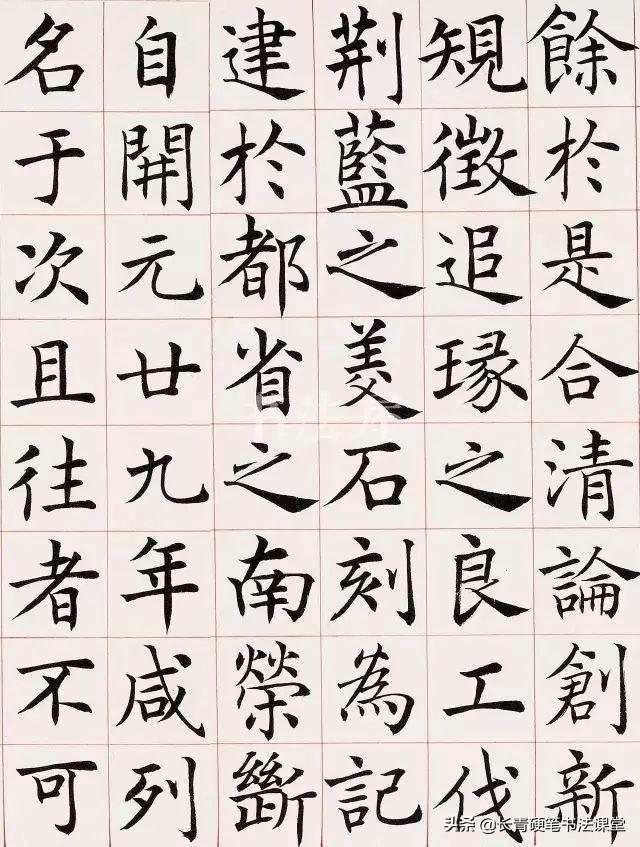 餘於是合清論創新
䂓徵追瑑之良工伐
荆藍之美石刻為記
建於都省之南榮斷
自開元廿九年咸列
名于次且往者不可
书法库
头条 @长青硬笔书法课堂